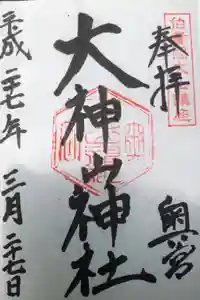 奉拝
奥宮
大神山神社
平成二十七年三月二十七日